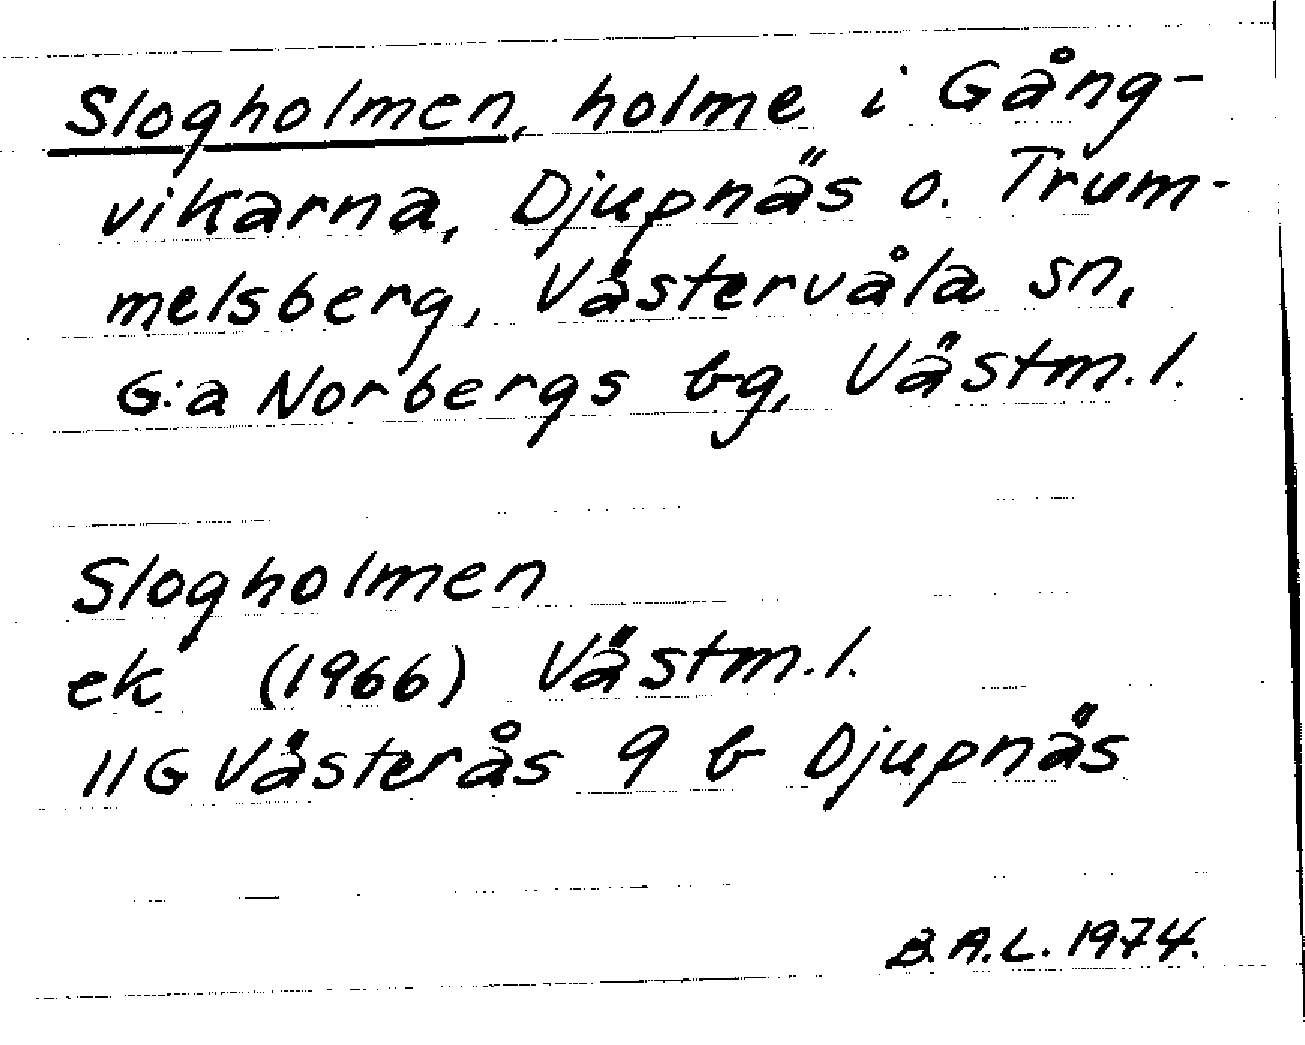 Slogholmen, holme i Gång-
vikarna, Djupnäs o. Trum-
melsberg, Västervåla sn,
G:a Norbergs bg, Västm. l.
Slogholmen
ek (1966) Västm. l.
11G Västerås 9 b Djupnäs
B.A.L. 1974.